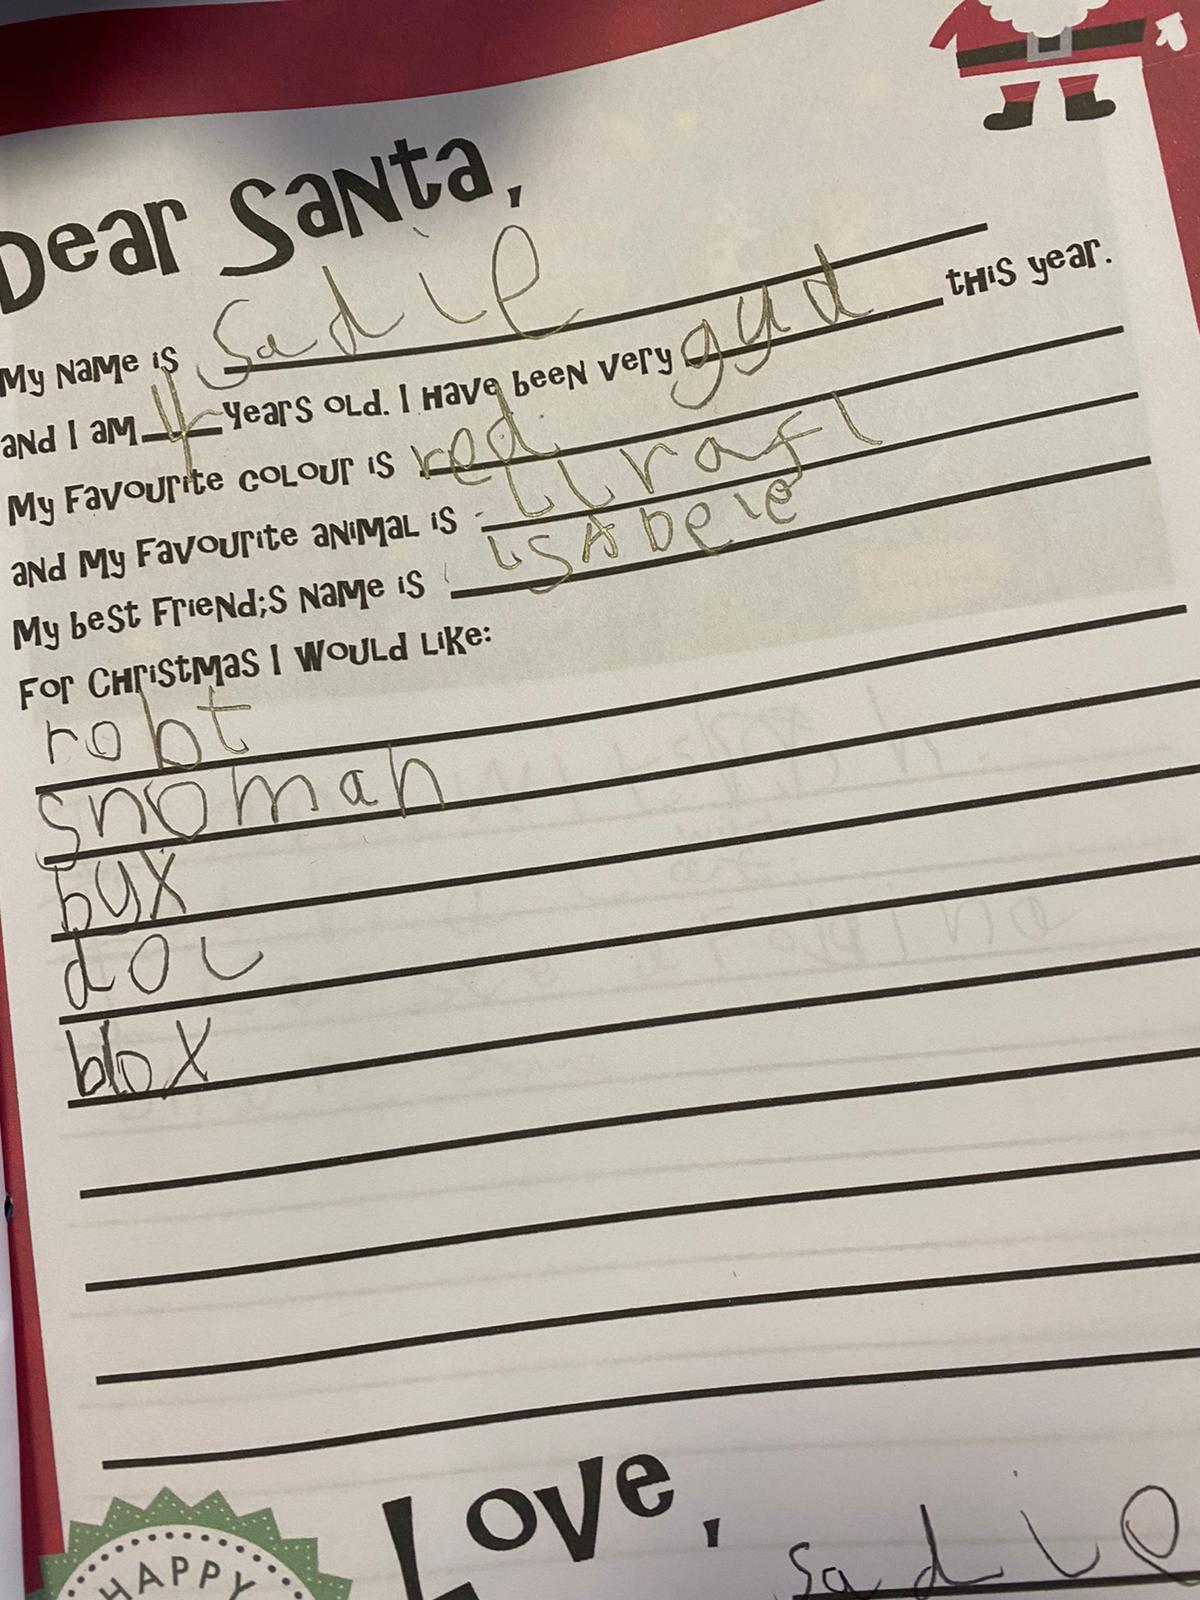 Dear Santa,
My name is Sadie
and I am 4 years old. I have been very gud this year.
My favourite colour is red
and my favourite animal is liraft
My best friend;s name is isAbele
For Christmas I would like:
robt
snoman
bux
dol
blox
Love, Sadie
HAPPY